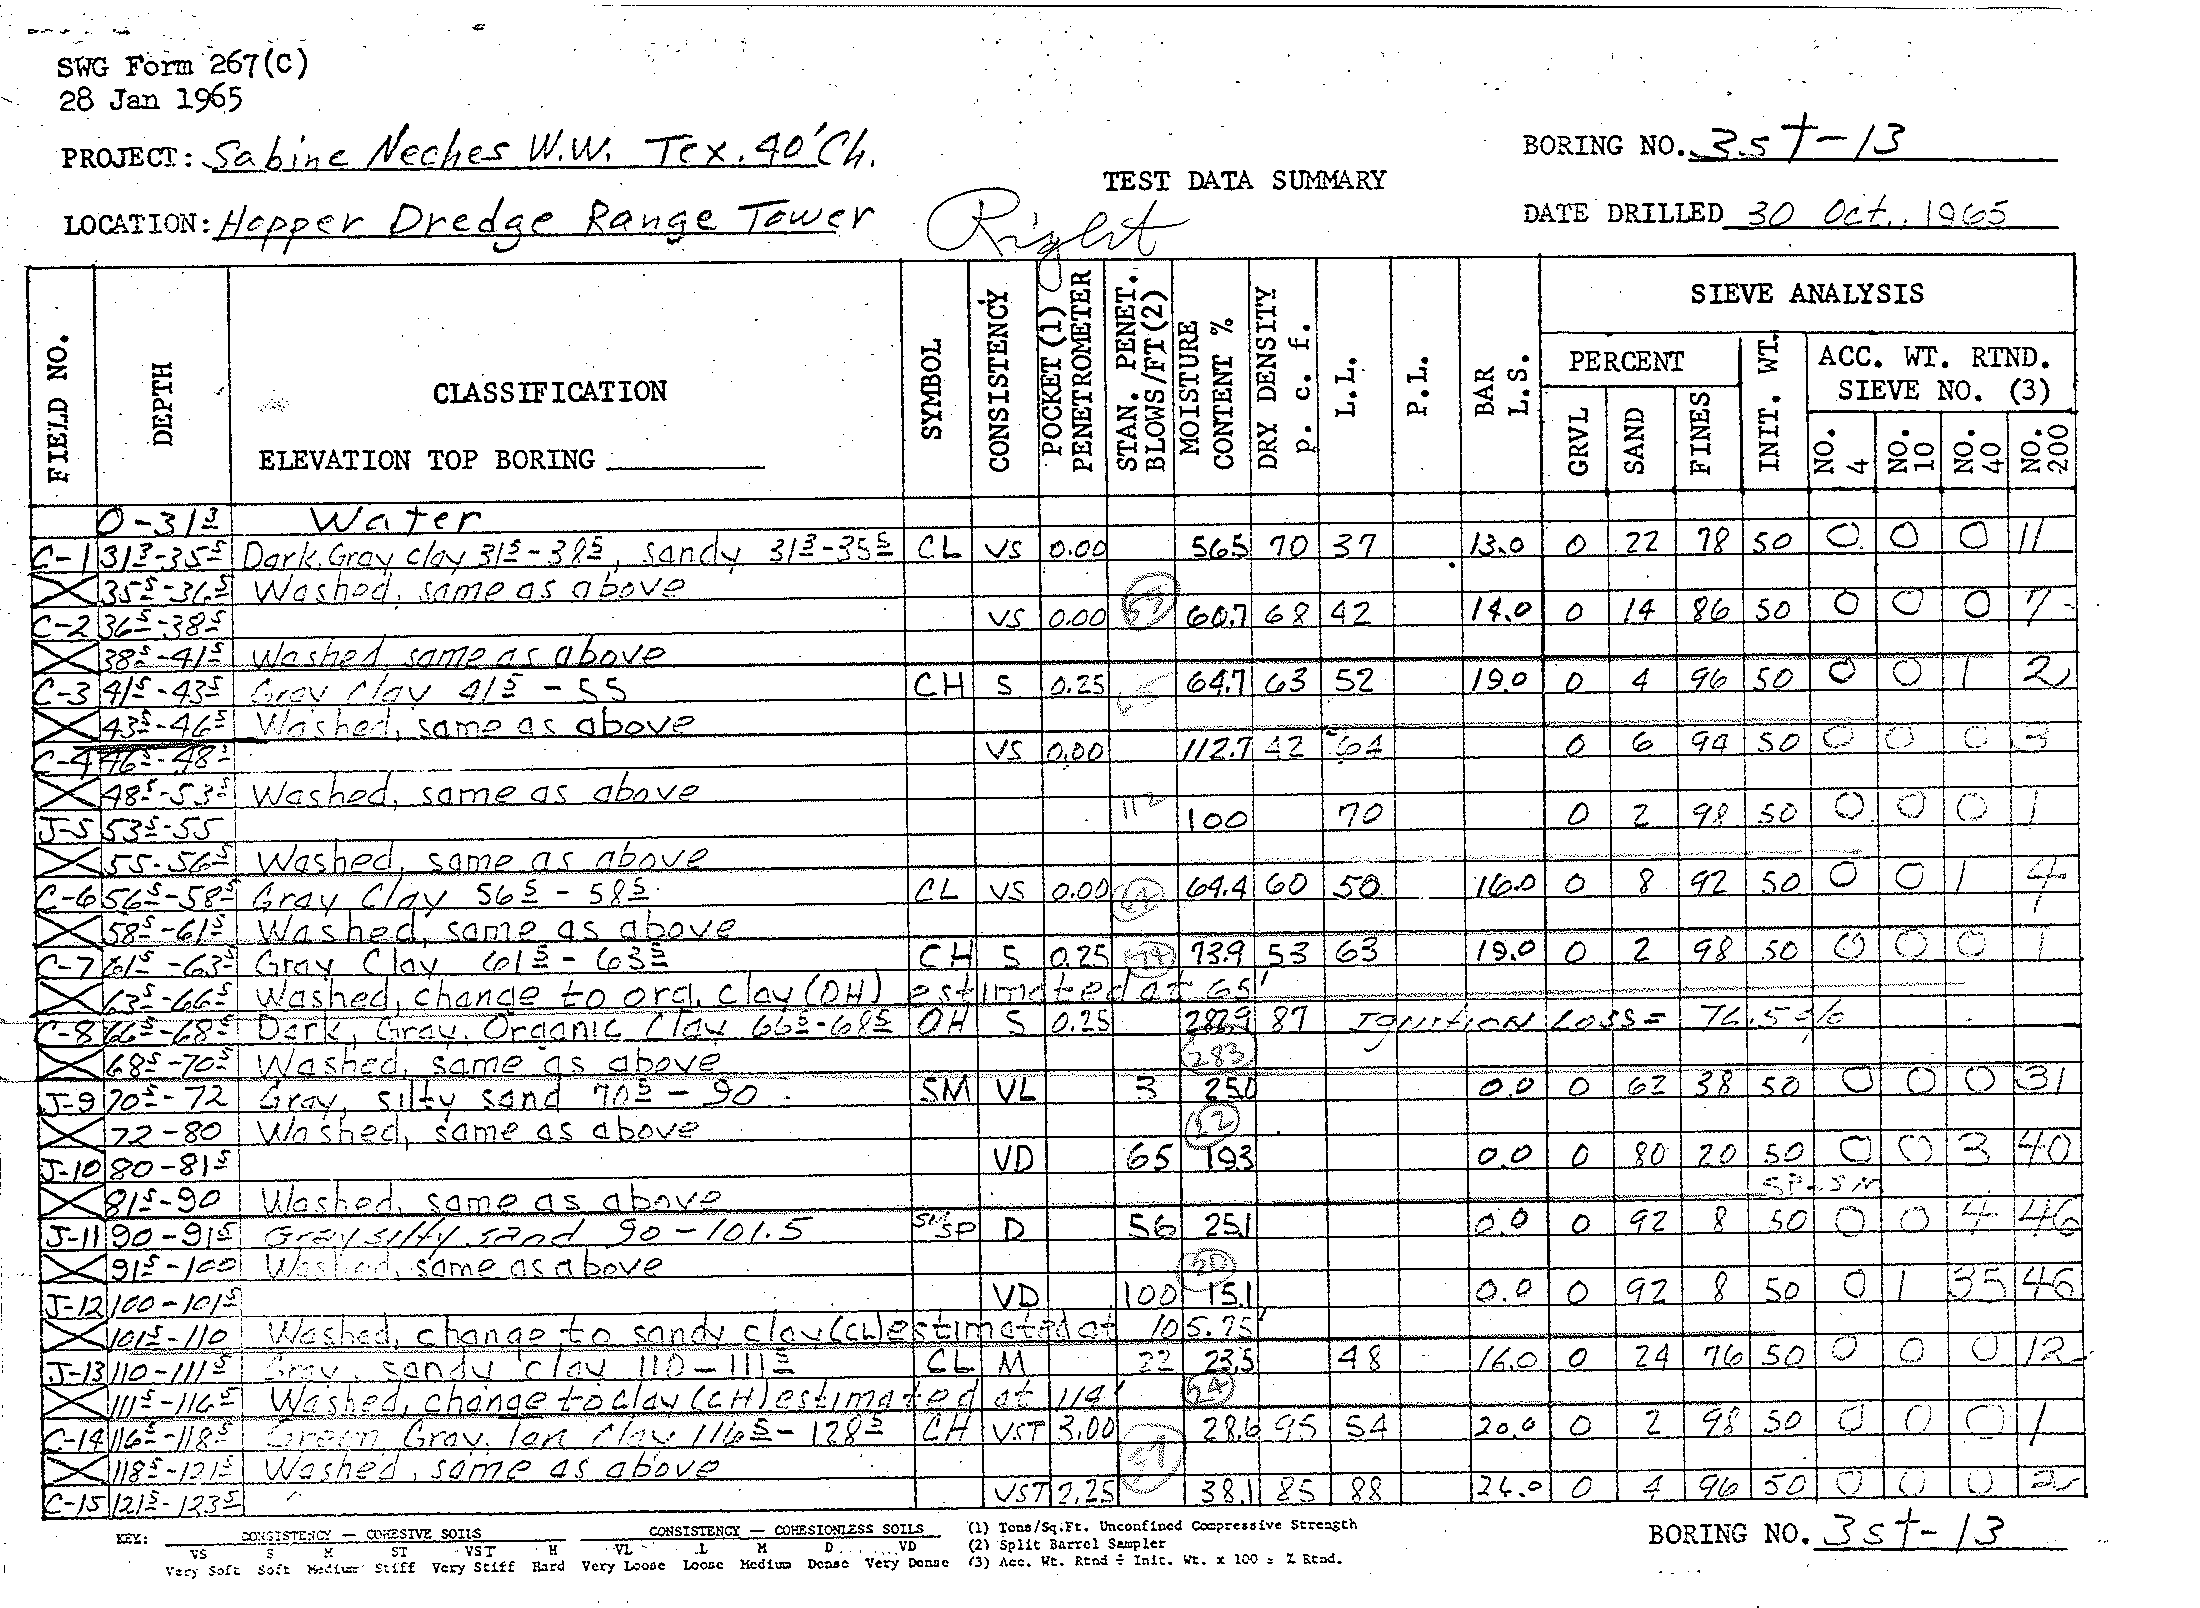 SWG Form 267(C)
28 Jan 1965
PROJECT: Sabine Neches W.W. Tex. 40' Ch.
BORING NO. 3st-13
TEST DATA SUMMARY
LOCATION: Hopper Dredge Range Tower Right
DATE DRILLED 30 Oct., 1965
FIELD NO. DEPTH CLASSIFICATION SYMBOL CONSISTENCY POCKET (1) PENETROMETER STAN. PENET. BLOWS/FT(2) MOISTURE CONTENT % DRY DENSITY p. c. f. L.L. P.L. BAR L.S. SIEVE ANALYSIS
ELEVATION TOP BORING
PERCENT INIT. WT. ACC. WT. RTND. SIEVE NO. (3)
GRVL SAND FINES NO. 4 NO. 10 NO. 40 NO. 200
0-31 3 Water
C-1 31 3-35 5 Dark Gray clay 31 5-38 5, sandy 31 3-35 5 CL VS 0.00 56.5 70 37 13.0 0 22 78 50 0 0 0 11
35 5-36 5 Washed, same as above
C-2 36 5-38 5 VS 0.00 60.7 68 42 14.0 0 14 86 50 0 0 0 7
38 5-41 5 Washed same as above
C-3 41 5-43 5 Gray Clay 41 5 - 55 CH S 0.25 64.7 63 52 19.0 0 4 96 50 0 0 1 2
43 5-46 5 Washed, same as above
C-4 46 5-48 5 VS 0.00 112.7 42 64 0 6 94 50 0 0 0 3
48 5-53 5 Washed, same as above
J-5 53 5-55 112 100 70 0 2 98 50 0 0 0 1
55-56 5 Washed, same as above
C-6 56 5-58 5 Gray Clay 56 5 - 58 5 CL VS 0.00 64.4 60 50 16.0 0 8 92 50 0 0 1 4
58 5-61 5 Washed, same as above
C-7 61 5-63 5 Gray Clay 61 5 - 63 5 CH S 0.25 73.9 53 63 19.0 0 2 98 50 0 0 0 1
63 5-66 5 Washed, change to org. clay (OH) estimated at 65'
C-8 66 5-68 5 Dark, Gray, Organic Clay 66 5-68 5 OH S 0.25 282.9 87 Ignition Loss = 76.5%
68 5-70 5 Washed, same as above 283
J-9 70 5-72 Gray, silty sand 70 5 - 90 SM VL 3 25.0 0.0 0 62 38 50 0 0 0 31
72-80 Washed, same as above
J-10 80-81 5 VD 65 19.3 0.0 0 80 20 50 0 0 3 40
81 5-90 Washed, same as above SP-SM
J-11 90-91 5 Gray silty sand 90-101.5 SM SP D 56 25.1 0.0 0 92 8 50 0 0 4 46
91 5-100 Washed, same as above
J-12 100-101 5 VD 100 15.1 0.0 0 92 8 50 0 1 35 46
101 5-110 Washed, change to sandy clay (CL) estimated at 105.75'
J-13 110-111 5 Gray, sandy clay 110-111 5 CL M 22 23.5 48 16.0 0 24 76 50 0 0 0 12
111 5-116 5 Washed, change to clay (CH) estimated at 114'
C-14 116 5-118 5 Green Gray, Tan Clay 116 5 - 128 5 CH VST 3.00 28.6 95 54 20.0 0 2 98 50 0 0 0 1
118 5-121 5 Washed, same as above
C-15 121 5-123 5 VST 2.25 38.1 85 88 26.0 0 4 96 50 0 0 0 2
KEY: CONSISTENCY — COHESIVE SOILS CONSISTENCY — COHESIONLESS SOILS (1) Tons/Sq.Ft. Unconfined Compressive Strength
VS S M ST VST H VL L M D VD (2) Split Barrel Sampler
Very Soft Soft Medium Stiff Very Stiff Hard Very Loose Loose Medium Dense Very Dense (3) Acc. Wt. Rtnd ÷ Init. Wt. x 100 = % Rtnd.
BORING NO. 3st-13